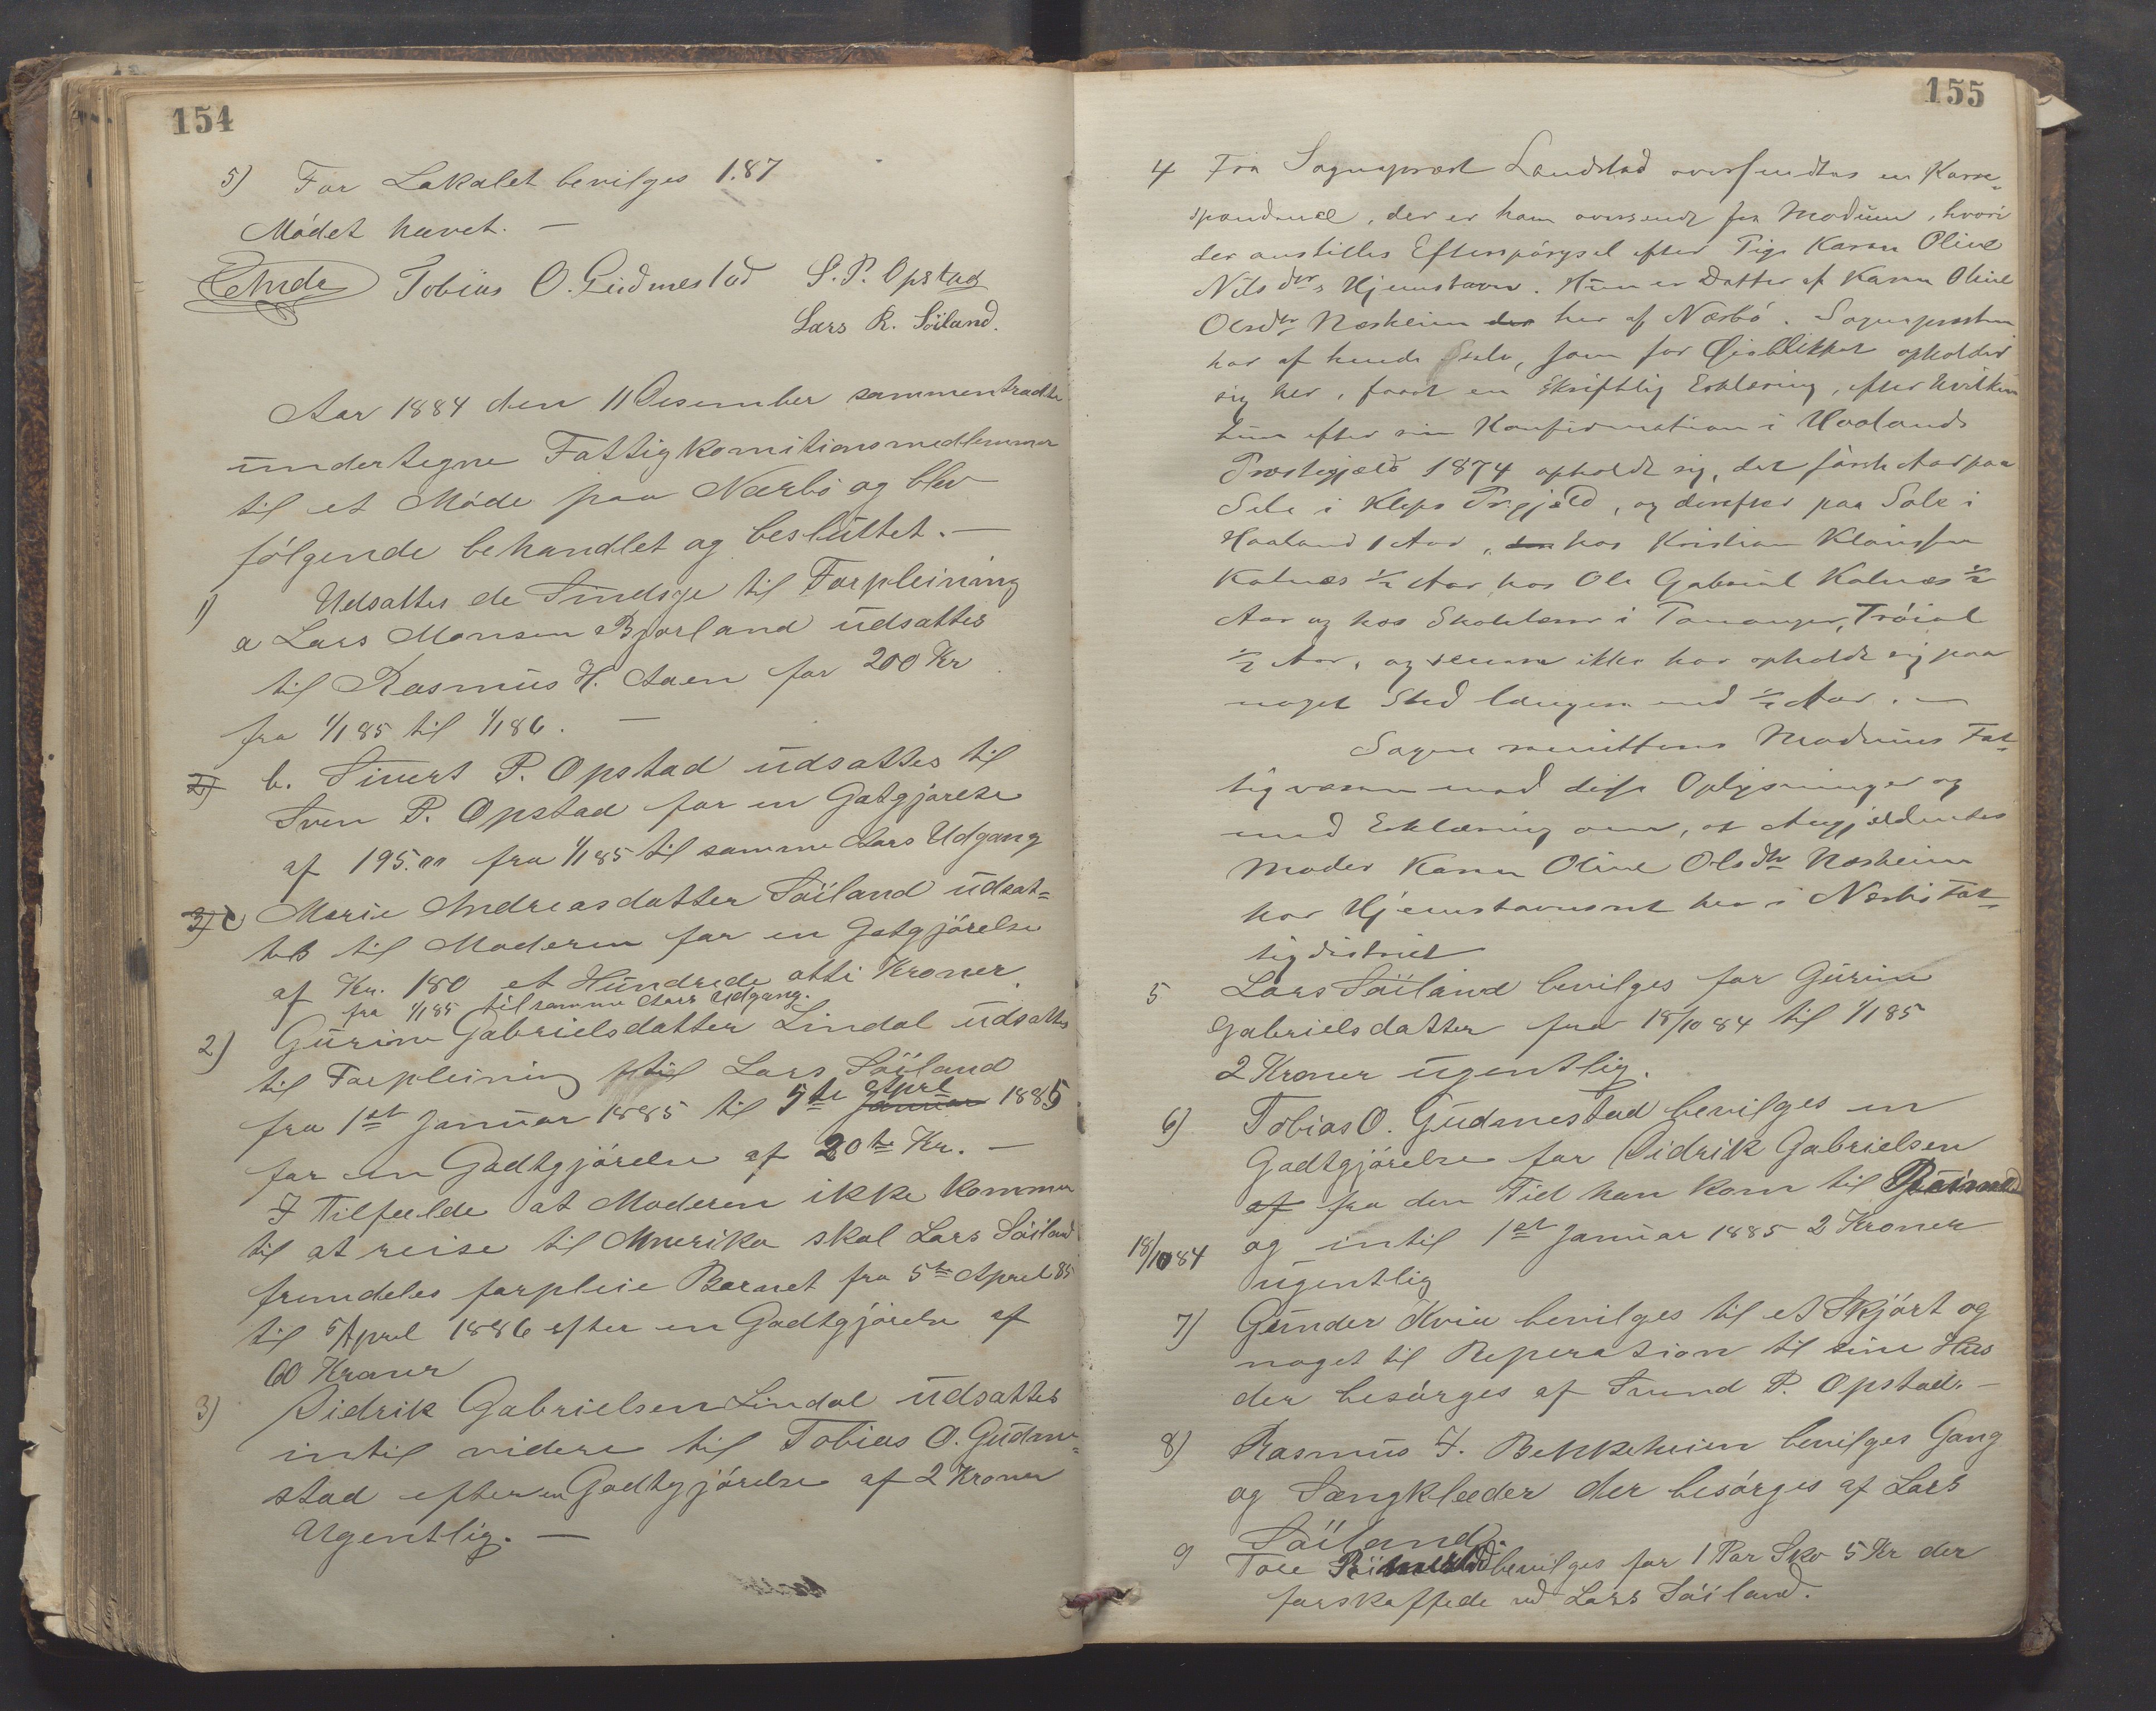 154
5) For Lokalet bevilges 1.87
Mödet hævet. —
Tobias O. Gudmestad S. P. Opstad
Lars R. Söiland.
Aar 1884 den 11 Desember sammentraadte
undertegne Fattigkomitionsmedlemmer
til et Möde paa Nærbö og blev
fölgende behandlet og besluttet. —
1) Udsattes de Sindsge til Forpleining
a Lars Monsen Bjorland udsattes
til Rasmus H. Aaen for 200 Kr
fra 1/1 85 til 1/1 86. —
2) b. Sivert P. Opstad udsattes til
Sven P. Opstad for en Gatgjörelse
af 195.00 fra 1/1 85 til samme Aars Udgang
3) c Marie Andreasdatter Söiland udsat=
tes til Moderen for en Gotgjörelse
af Kr. 180 et Hundrede otti Kroner.
fra 1/1 85 til samme Aars Udgang.
2) Gurine Gabrielsdatter Lindal udsattes
til Forpleining til Lars Söiland
fra 1st Januar 1885 til 5te Januar Aprl 1885
for en Godtgjörelse af 20te Kr. —
I Tilfelde at Moderen ikke kommer
til at reise til Amerika skal Lars Söiland
fremdeles forpleie Barnet fra 5te April 85
til 5 April 1886 efter en Godtgjörelse af
60 Kroner
3) Didrik Gabrielsen Lindal udsattes
intil videre til Tobias O. Gudme=
stad efter en Godtgjörelse af 2 Kroner
Ugentlig. —
155
4 Fra Sogneprest Landstad oversendtes en Korre=
spondance, der er ham oversendt fra Modum, hvori
der anstilles Efterspörgsel efter Pige Karen Oline
Nilsdtrs Hjemstavn. Hun er Datter af Karen Oline
Olsdtr Næsheim der her af Nærbö. Sognepresten
har af hende selv, som for Öieblikket opholder
sig her, faaet en skriftlig Erklæring, efter hvilken
hun efter sin Konfirmation i Haalands
Præstegjeld 1874 opholdt sig, det förste Aar paa
Sele i Kleps Prgjeld, og derefter paa Sole i
Haaland 1 Aar, hos Kristian
Kolnæs 1/2 Aar, hos Ole Gabriel Kolnæs 1/2
Aar og hos Skolelærer i Tananger, Tröial
1/2 Aar, og senere ikke har opholdt sig paa
noget Sted længere end 1/2 Aar. —
Sagen remitteres Modums Fat=
tigvæsen med disse Oplysninger og
med Erklæring om, at Angjældendes
Moder Karen Oline Olsdtr Næsheim
har Hjemstavnsret her i Nærbö Fat=
tigdistrict
5 Lars Söiland bevilges for Gurine
Gabrielsdatter fra 18/10 84 til 1/1 85
2 Kroner ugentlig.
6) Tobias O. Gudmestad bevilges en
Godtgjörelse for Didrik Gabrielsen
af fra den Tid han kom til
18/10 84 og intil 1st Januar 1885 2 Kroner
ugentlig
7) Gunder Kvia bevilges til et Skjört og
noget til Reperasion til sine Hus
der besörges af Svend P. Opstad. —
8) Rasmus I. Bekkeheien bevilges Gang
og Sængkleeder der besörges af Lars
Söiland.
9 Tore bevilges for 1 Par Sko 5 Kr der
forskaffede ved Lars Söiland.